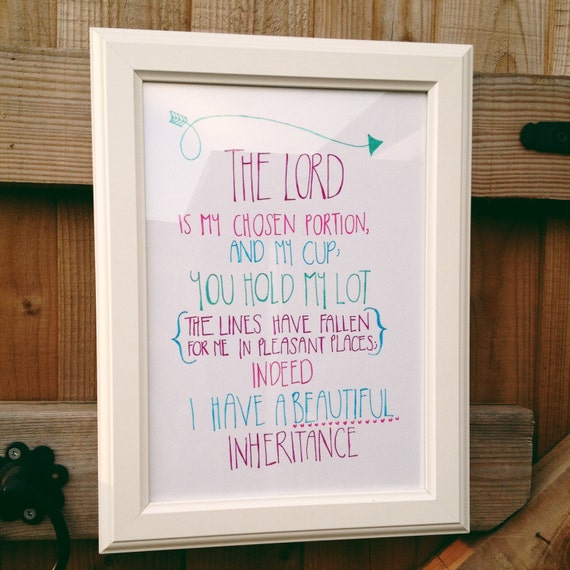 THE LORD
IS MY CHOSEN PORTION,
AND MY CUP;
YOU HOLD MY LOT
{THE LINES HAVE FALLEN
FOR ME IN PLEASANT PLACES;}
INDEED
I HAVE A BEAUTIFUL
INHERITANCE